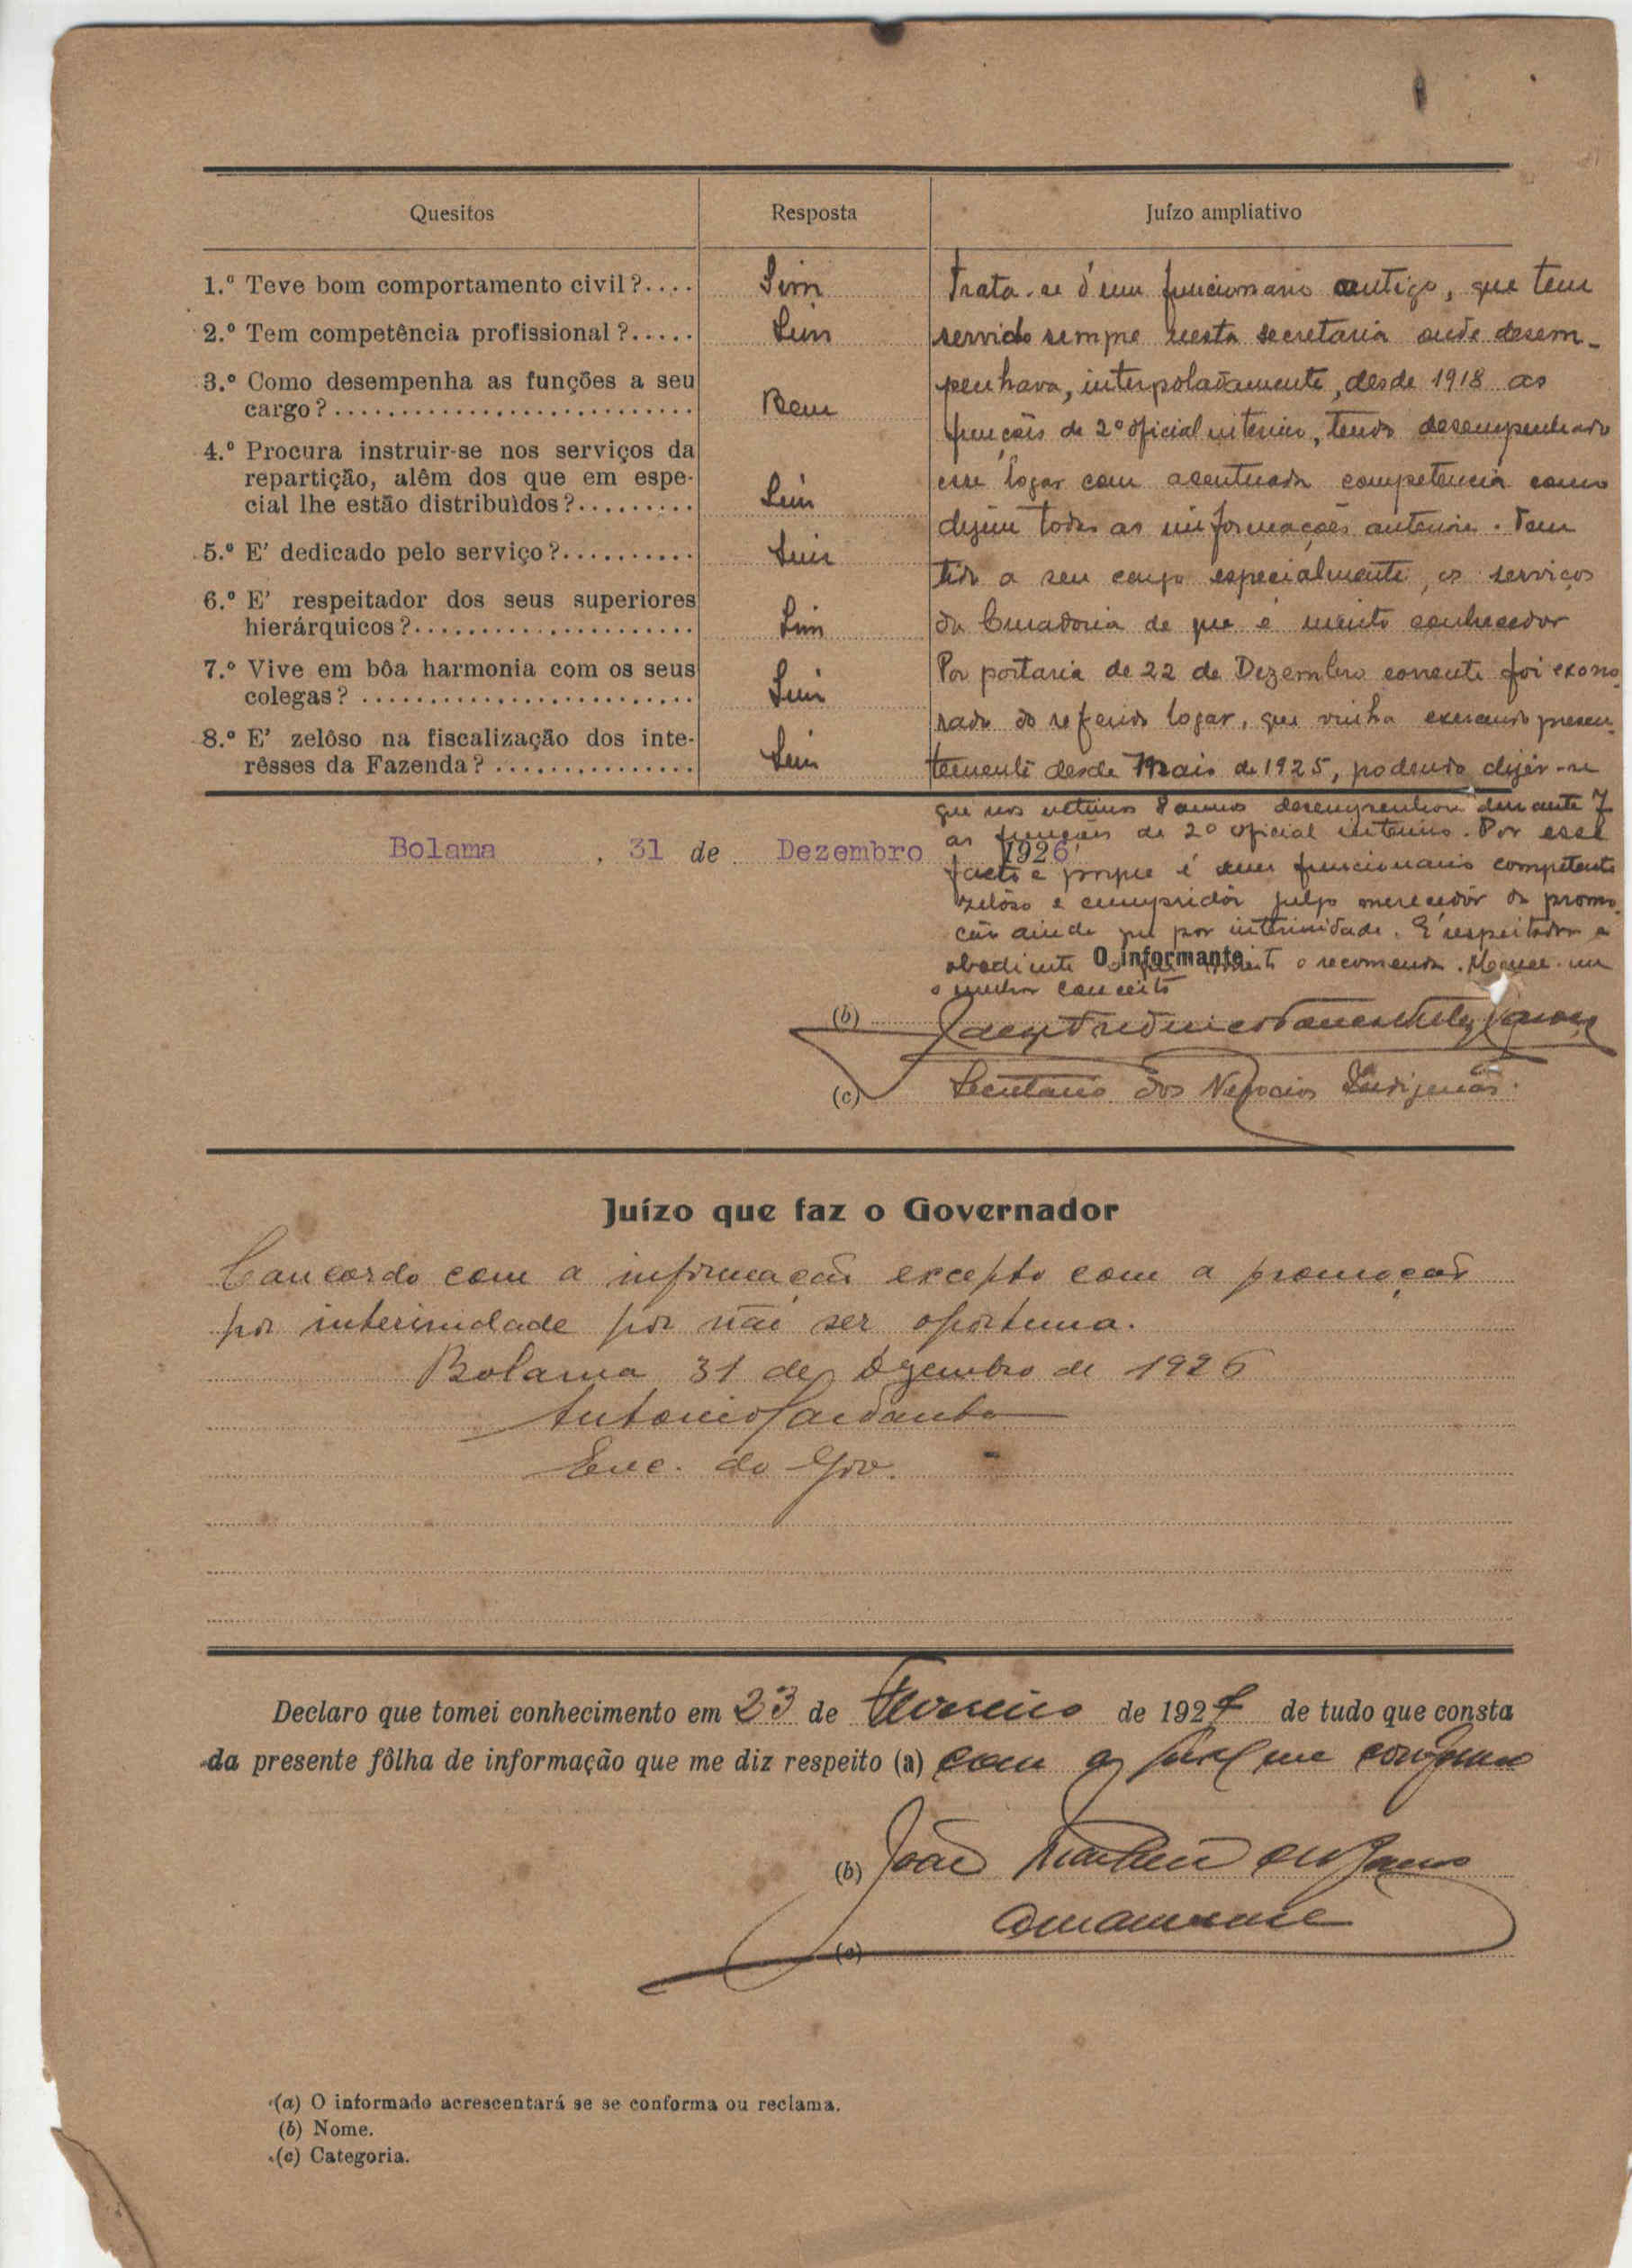 Quesitos
Resposta
Juízo ampliativo
1.º Teve bom comportamento civil?....
Sim
2.º Tem competência profissional?.....
Sim
3.º Como desempenha as funções a seu
cargo?...........................
Bem
4.º Procura instruir-se nos serviços da
repartição, alêm dos que em espe-
cial lhe estão distribuìdos?.........
Sim
5.º E' dedicado pelo serviço?..........
Sim
6.º E' respeitador dos seus superiores
hierárquicos?.....................
Sim
7.º Vive em bôa harmonia com os seus
colegas?.........................
Sim
8.º E' zelôso na fiscalização dos inte-
rêsses da Fazenda?...............
Sim
Trata-se d'um funcionario antigo, que tem
servido sempre nesta secretaria onde desem-
penhava, interpoladamente, desde 1918 as
funções de 2º oficial interino, tendo desempenhado
esse logar com acentuada competencia como
dizem todas as informações anteriores. Tem
tido a seu cargo especialmente, os serviços
da Curadoria de que é muito conhecedor
Por portaria de 22 de Dezembro corrente foi exone-
rado do referido logar, que vinha exercendo
desde Maio de 1925, podendo dizer-se
que nos ultimos 8 annos desempenhou durante 7
as funções de 2º oficial interino. Por esse
facto e porque é um funcionario competente
zelôso e cumpridôr julgo merecedôr da promo-
ção ainda que por interinidade. E' respeitador e
obediente o que o recomenda. Merece-me
o melhor conceito
Bolama, 31 de Dezembro 1926
O informante
(b)
(c) Secretario dos Negocios Indigenas.
Juízo que faz o Governador
Concordo com a informação excepto com a promoção
por interinidade por não ser oportuna.
Bolama 31 de Dezembro de 1926
Antonio
Enc. do Gov.
Declaro que tomei conhecimento em 23 de Fevereiro de 1927 de tudo que consta
da presente fôlha de informação que me diz respeito (a) com a qual me conformo
(b) João
(c) Amanuense
(a) O informado acrescentará se se conforma ou reclama.
(b) Nome.
(c) Categoria.